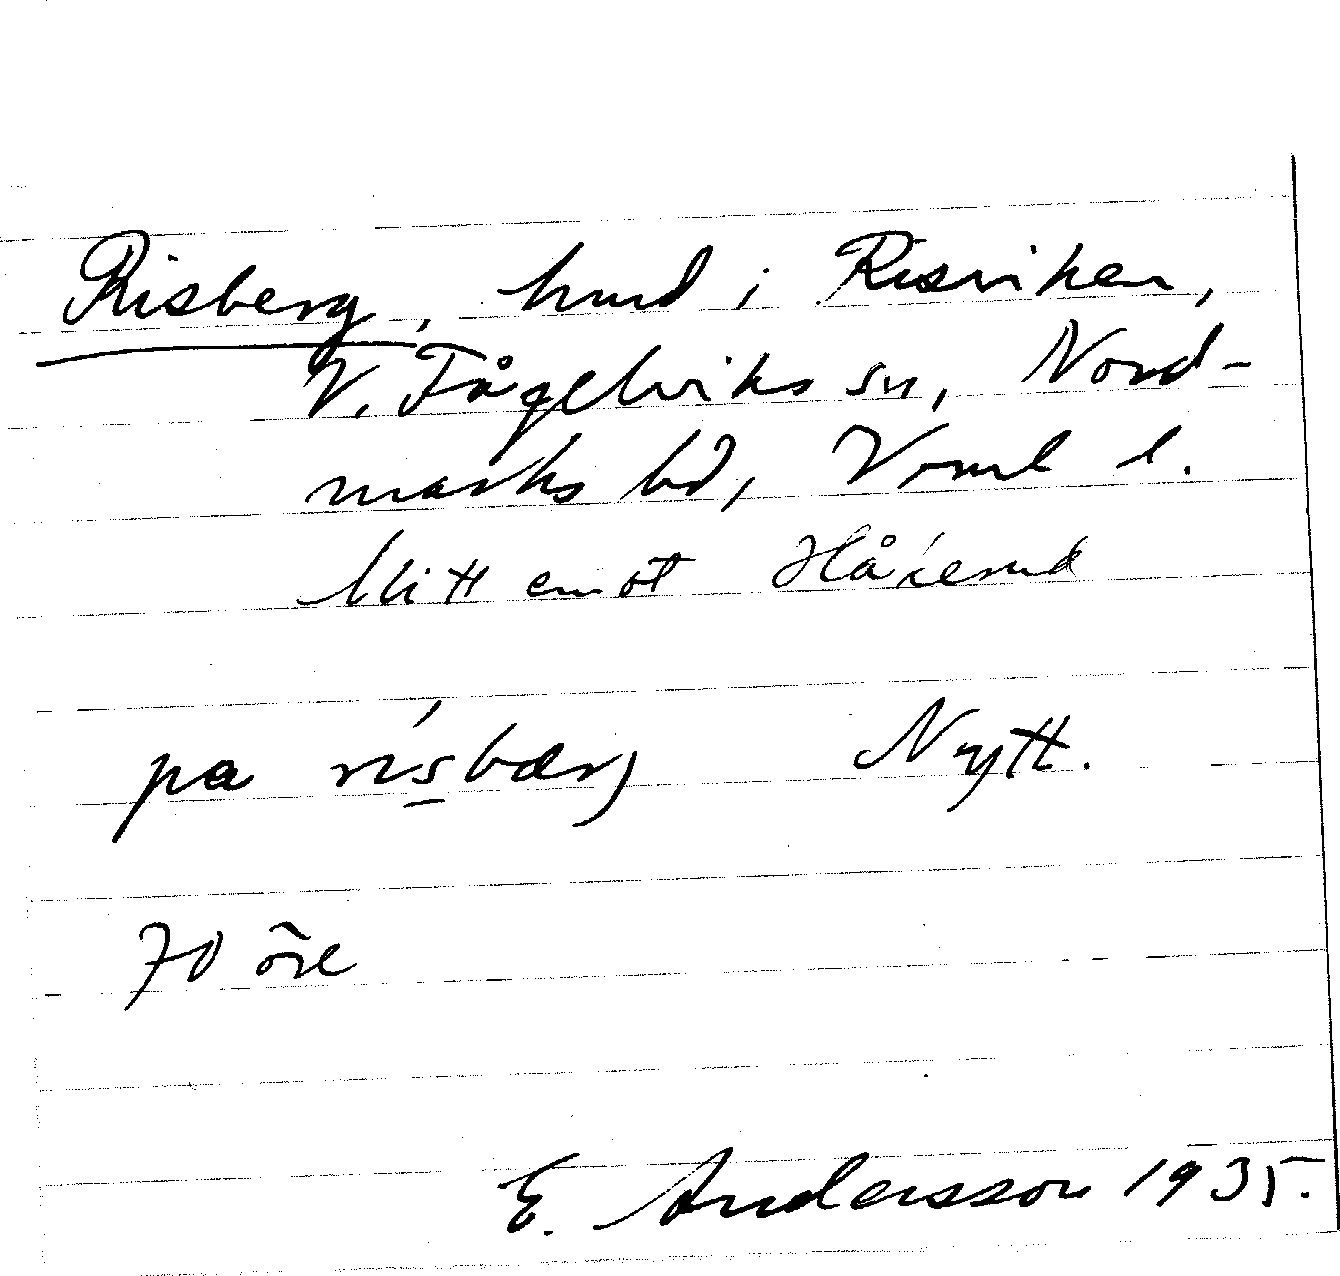 Risberg, hmd i Risviken,
V. Fågelviks sn, Nord-
marks hd, Vrml l.
Mitt emot Håkerud
pa risbærj Nytt.
70 öre
E. Andersson 1935.